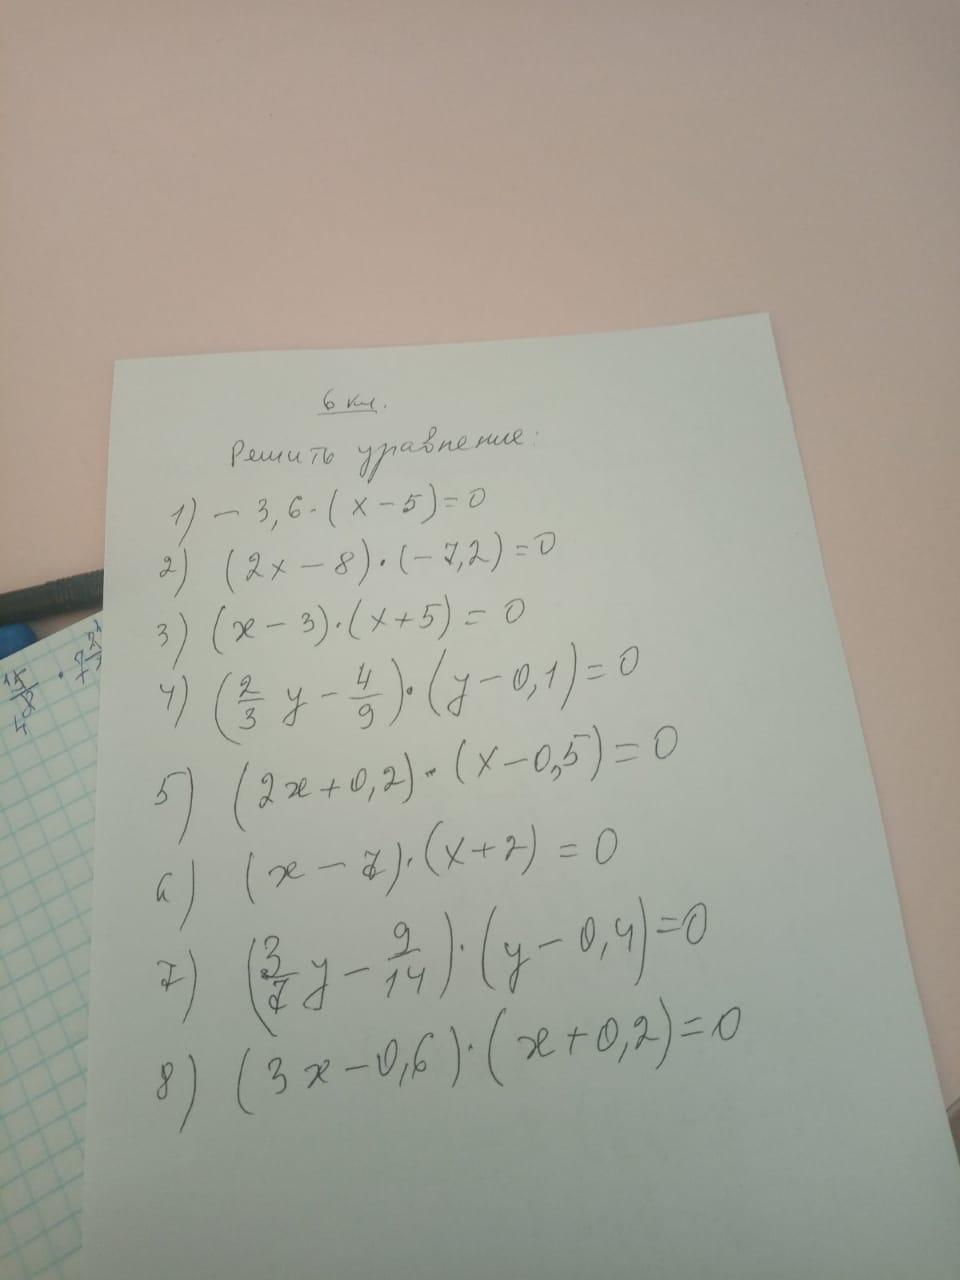 6 кл.
Решить уравнение:
1) - 3,6 · (x - 5) = 0
2) (2x - 8) · (- 7,2) = 0
3) (x - 3) · (x + 5) = 0
4) (2/3 y - 4/9) · (y - 0,1) = 0
5) (2x + 0,2) · (x - 0,5) = 0
6) (x - 7) · (x + 2) = 0
7) (3/7 y - 9/14) · (y - 0,4) = 0
8) (3x - 0,6) · (x + 0,2) = 0